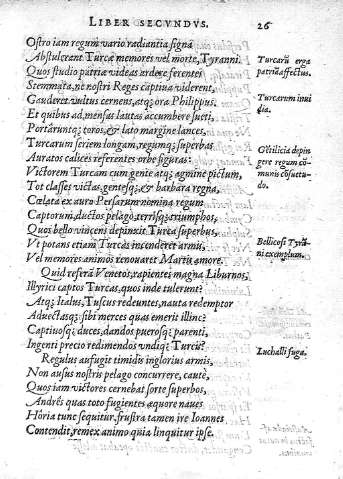 LIBER SECVNDVS. 26
Ostro iam regum vario radiantia signa
Abstulerant Turcæ memores vel morte, Tyranni.
Turcarũ erga
Quos studio patriæ videas ardere ferentes
patriã affectus.
Stemmata, ne nostri Reges captiua viderent,
Gauderet vultus cernens, atq; ora Philippus.
Turcarum inui
dia.
Et quibus ad mensas lautas accumbere sueti,
Portãruntq; toros, & lato margine lances,
Turcarum seriem longam, regumq; superbas
Auratos calices referentes orbe figuras:
gere regum cõ
Victorem Turcam cum gente atq; agmine pictum,
munis cõsuetu-
do.
Tot classes victas, gentesq;, & barbara regna,
Cœlata ex auro Persarum nomina regum
Captorum, ductos pelago, terrisq; triumphos,
Quos bello vincens depinxit Turca superbus,
Vt potans etiam Turcas incenderet armis,
Bellicosi Tyrã
ni exemplum.
Vel memores animos renouaret Martis amore.
Quid referã Venetos, rapientes magna Liburnos,
Illyrici captos Turcas, quos inde tulerunt?
Atq; Italus, Tuscus redeuntes, nauta redemptor
Aduectasq; sibi merces quas emerit illinc?
Captiuosq; duces, dandos puerosq; parenti,
Ingenti precio redimendos vndiq; Turcis?
Luchalli fuga.
Regulus aufugit timidis inglorius armis,
Non ausus nostris pelago concurrere, cautè,
Quos iam victores cernebat sorte superbos,
Andrês quas toto fugientes æquore naues
Hôria tunc sequitur, frustra tamen ire Ioannes
Contendit, remex animo quia linquitur ipse.